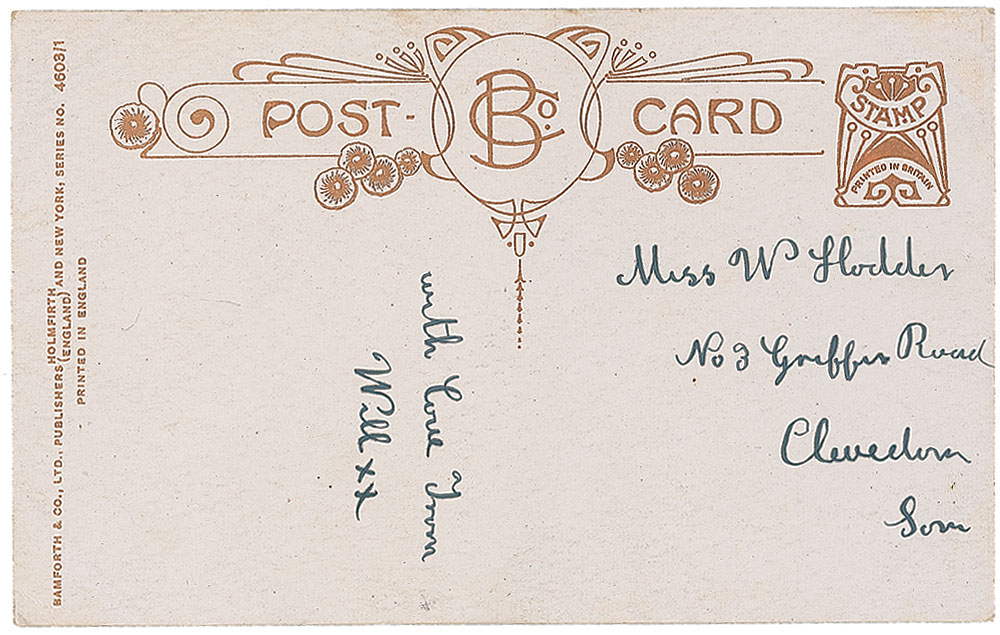 POST-CARD
BCo.
STAMP
PRINTED IN BRITAIN
BAMFORTH & CO., LTD., PUBLISHERS HOLMFIRTH (ENGLAND) AND NEW YORK, SERIES NO. 4603/1
PRINTED IN ENGLAND
with Love From
Will xx
Miss W Hodder
No 3 Griffin Road
Clevedon
Som